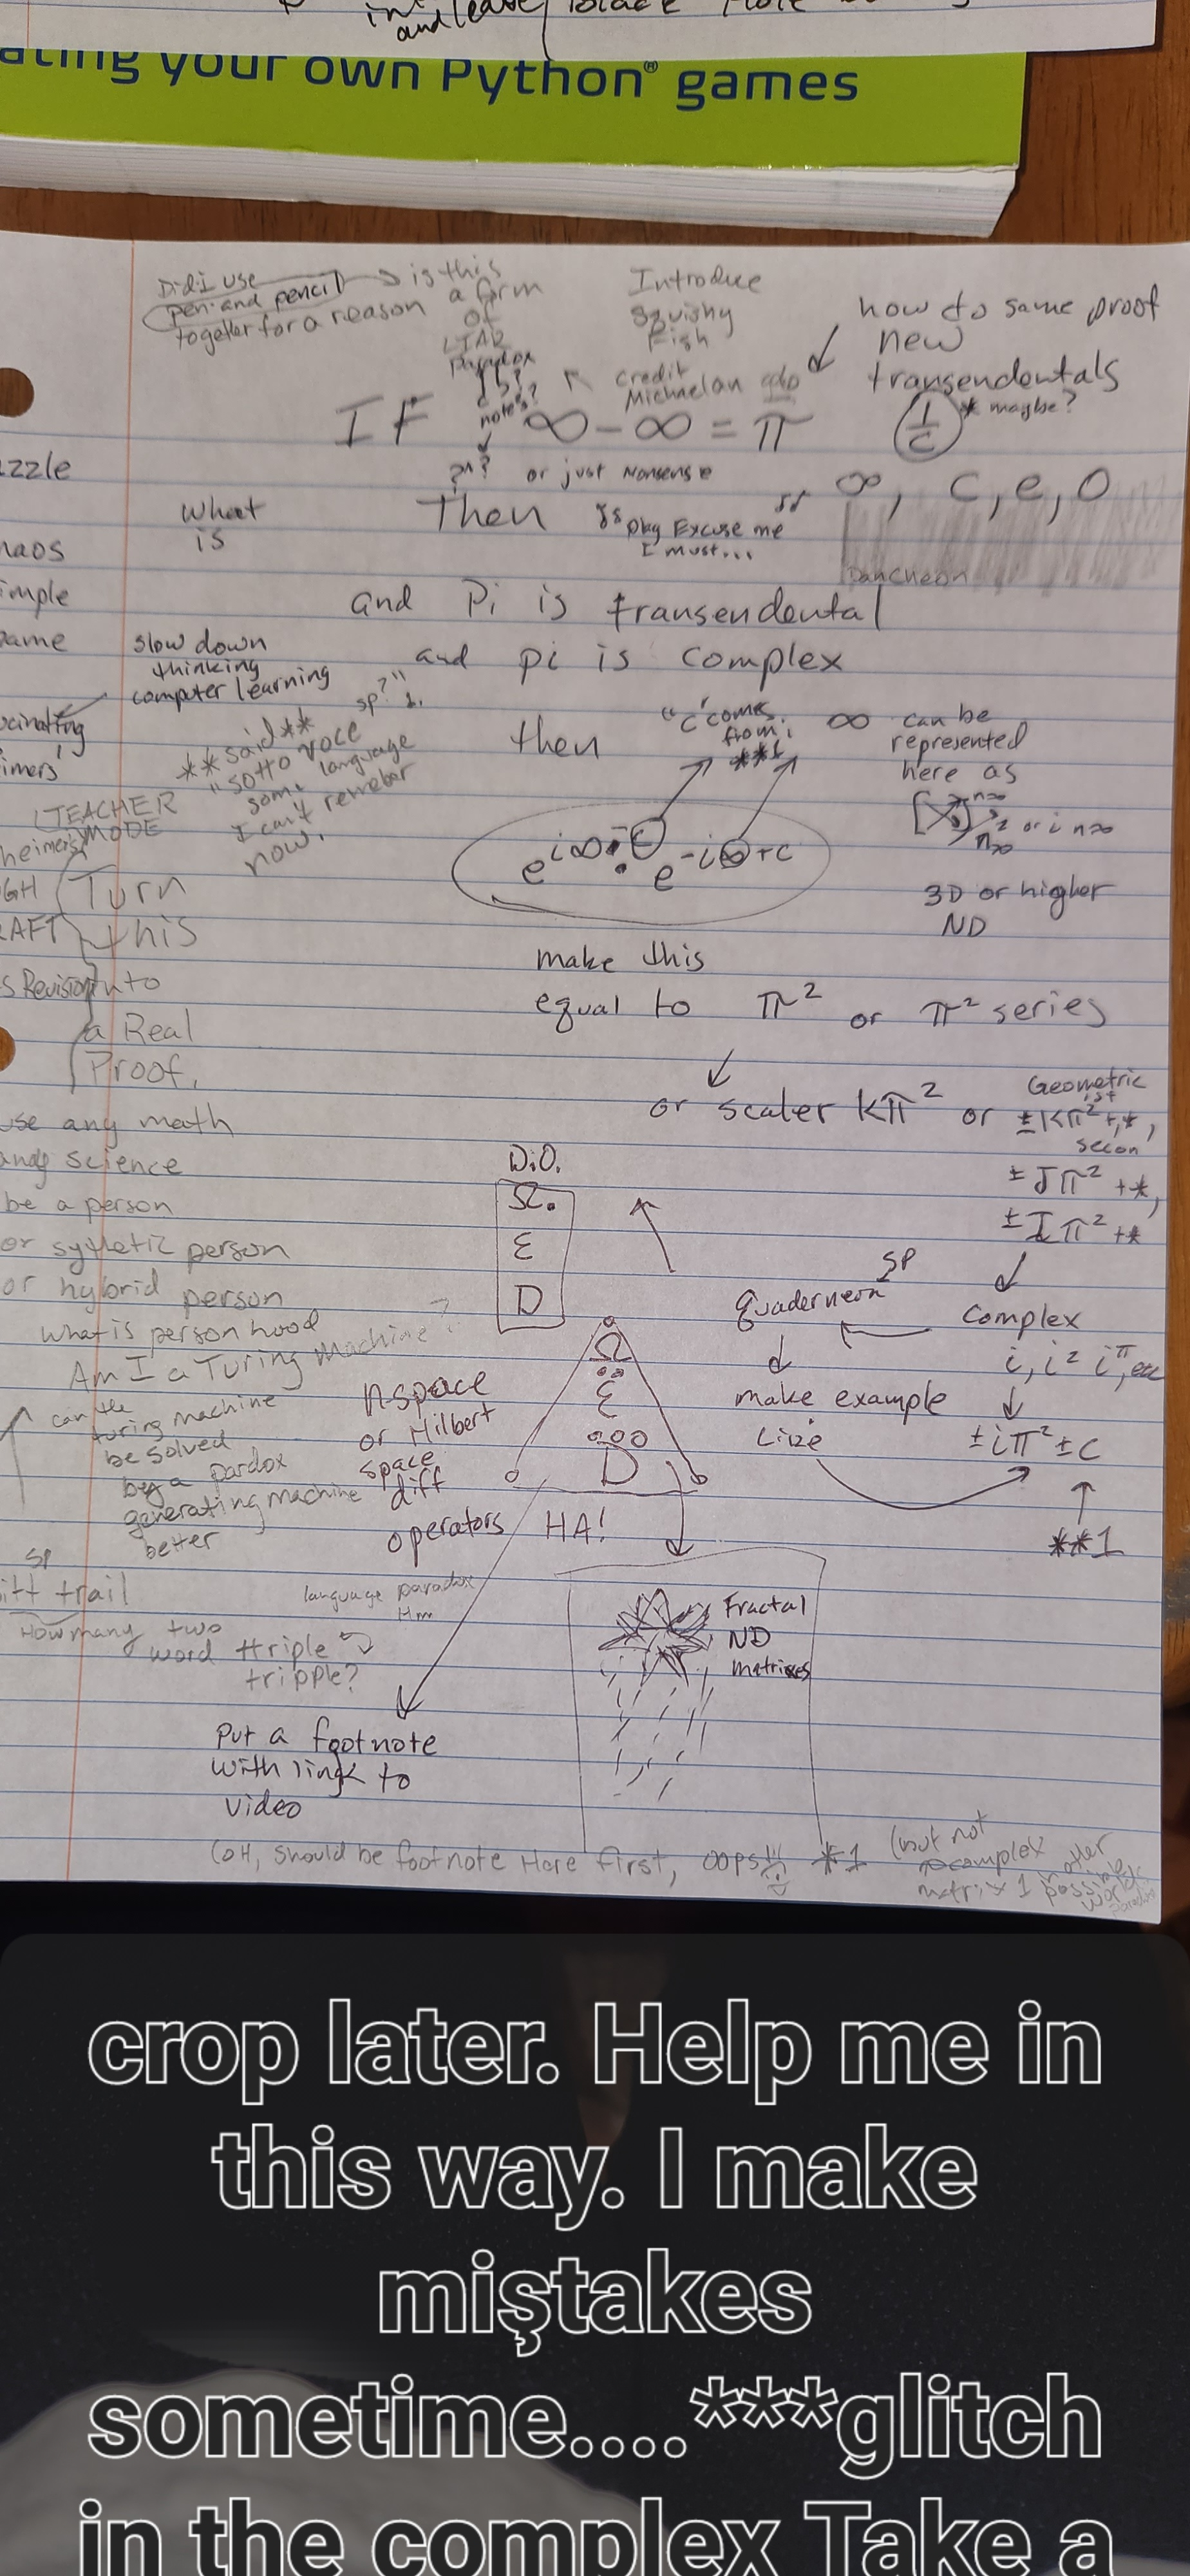 and leave
black Hole
ating your own Python® games
Did I use
pen and pencil
together for a reason
is this
a form
of
LIAR
paradox
Introduce
Squishy
Fish
credit
how to same proof
new
transendentals
1/c * maybe?
note's?
IF ∞ - ∞ = π
or just Nonsense
∞, c, e, 0
What
is
Then
Okay Excuse me
I must...
zzle
haos
imple
game
and Pi is transendental
and pi is complex
slow down
thinking
computer learning
cinating
imers'
**said**
"sotto voce
sp?"
some language
I can't remeber
now.
then
"c" comes
from
**1
∞ can be
represented
here as
3D or higher
ND
TEACHER
MODE
heimers
GH
RAFT
s Revision
Turn
this
into
a Real
Proof.
make this
equal to π² or π² series
or scaler kπ² or
Geometric
±Kπ²+,*,
secon
±Jπ²+*,
±Iπ²+*
use any math
and science
be a person
or sythetic person
or hybrid person
What is person hood
Am I a Turing Machine?
can the
turing machine
be solved
by a pardox
generating machine
better
D.O.
Ω.
ε
D
SP
quaderneon
complex
i, i² i^π, etc
make example
Like
±iπ²±c
**1
Ω
ε
D
n-space
or Hilbert
space
diff
operators HA!
sp
itt trail
How many two
word ttriple
tripple?
language paradox
Hm
Fractal
ND
matrixes
Put a footnote
with link to
video
(OH, should be footnote Here first, oops!! *1
(but not
complex
matrix 1
other
possible
world
paradox
crop later. Help me in
this way. I make
miştakes
sometime....***glitch
in the complex Take a